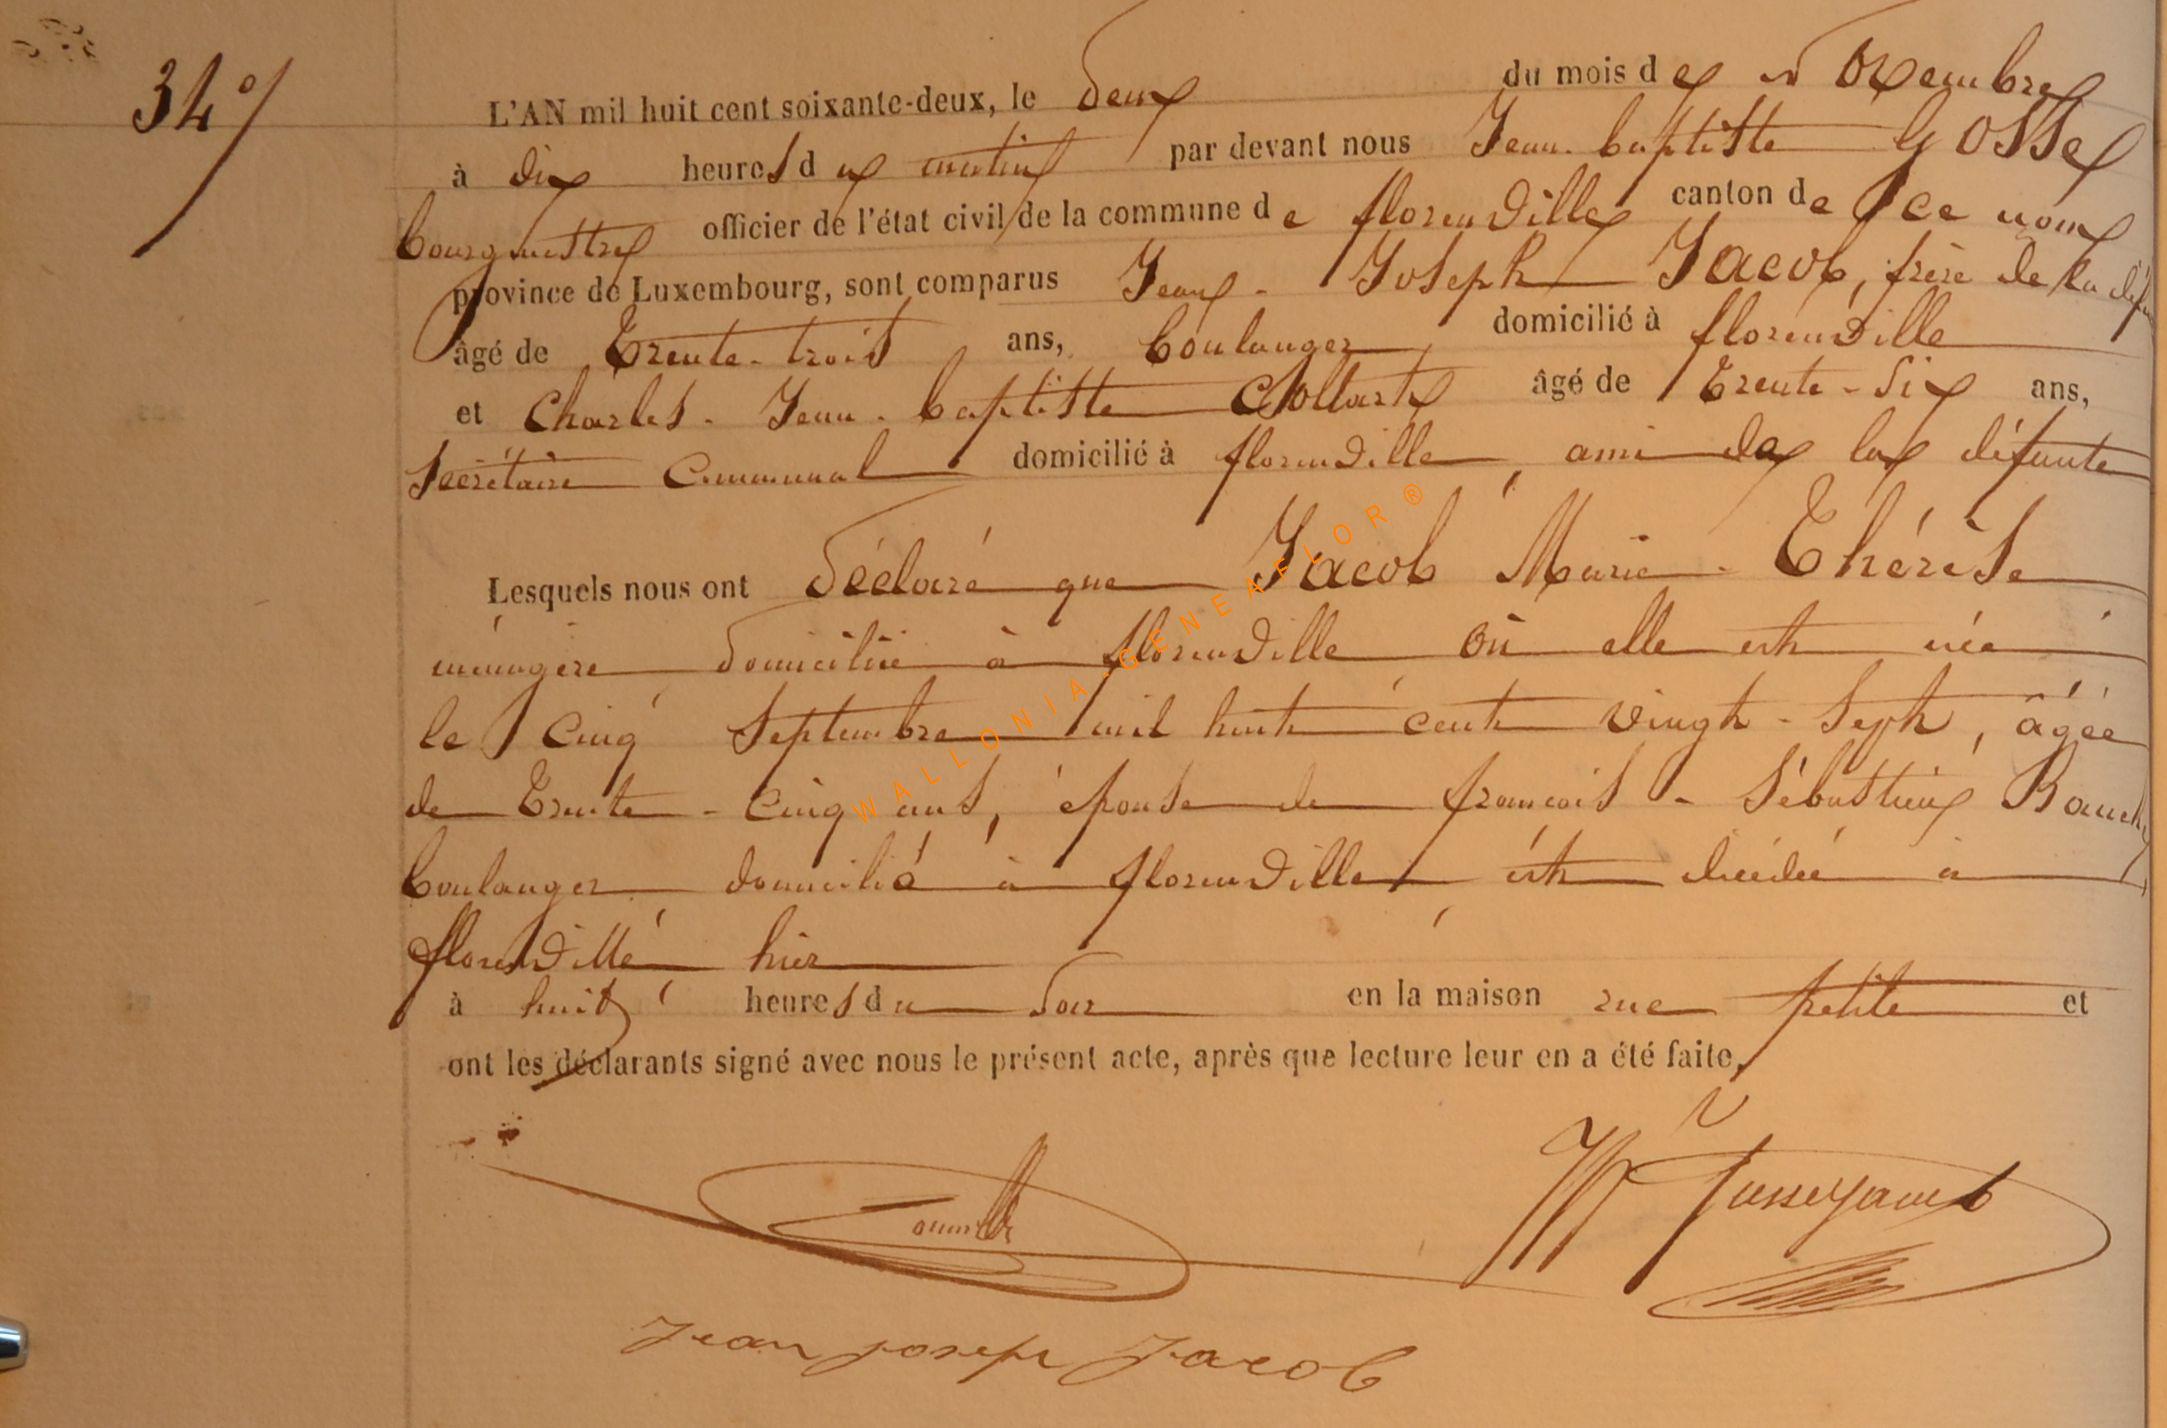 34°/
L'AN mil huit cent soixante-deux, le deux du mois de novembre
à dix heures du matin par devant nous Jean-baptiste Gosse
bourgmestre officier de l'état civil de la commune de florenville canton de ce nom
province de Luxembourg, sont comparus Jean-Joseph Jacob, frère de la
âgé de trente-trois ans, boulanger domicilié à florenville
et Charles-Jean-baptiste âgé de trente-six ans,
Secrétaire Communal domicilié à florenville, ami de la défunte
Lesquels nous ont déclaré que Jacob Marie-Thérèse
ménagère domiciliée à florenville où elle est née
le cinq Septembre mil huit cent vingt-Sept, âgée
de trente-cinq ans, épouse de françois-Sébastien
boulanger domicilié à florenville est décédée à
florenville hier
à huit heures du soir en la maison rue petite et
ont les déclarants signé avec nous le présent acte, après que lecture leur en a été faite.
Jean joseph Jacob
WALLONIA-GENEAFLOR®